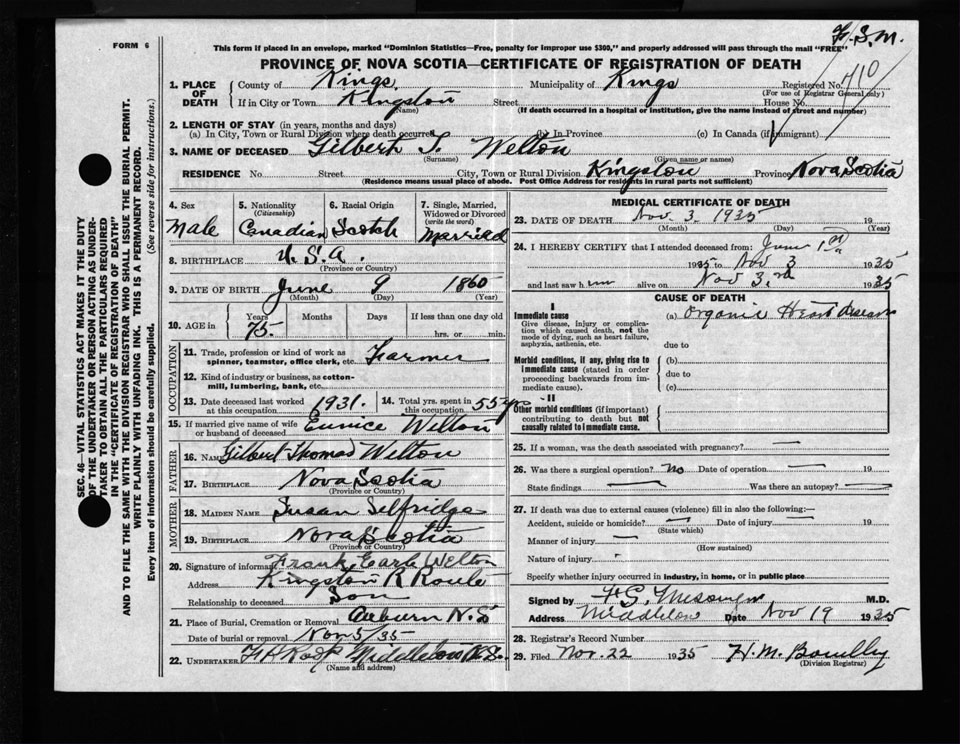 FORM 6
F.S.M.
This form if placed in an envelope, marked "Dominion Statistics—Free, penalty for improper use $300," and properly addressed will pass through the mail "FREE"
PROVINCE OF NOVA SCOTIA—CERTIFICATE OF REGISTRATION OF DEATH
1. PLACE OF DEATH County of Kings Municipality of Kings Registered No. 710
(For use of Registrar General only)
If in City or Town Kingston Street House No.
(Name) (If death occurred in a hospital or institution, give the name instead of street and number)
2. LENGTH OF STAY (in years, months and days)
(a) In City, Town or Rural Division where death occurred (b) In Province (c) In Canada (if immigrant)
3. NAME OF DECEASED Gilbert T. Welton
(Surname) (Given name or names)
RESIDENCE No. Street City, Town or Rural Division Kingston Province Nova Scotia
(Residence means usual place of abode. Post Office Address for residents in rural parts not sufficient)
4. Sex Male
5. Nationality (Citizenship) Canadian
6. Racial Origin Scotch
7. Single, Married, Widowed or Divorced (write the word) Married
8. BIRTHPLACE U.S.A.
(Province or Country)
9. DATE OF BIRTH June 9 1860
(Month) (Day) (Year)
10. AGE in Years 75 Months Days If less than one day old
hrs. or min.
OCCUPATION
11. Trade, profession or kind of work as spinner, teamster, office clerk, etc. Farmer
12. Kind of industry or business, as cotton-mill, lumbering, bank, etc.
13. Date deceased last worked at this occupation 1931. 14. Total yrs. spent in this occupation 55 yrs
15. If married give name of wife or husband of deceased Eunice Welton
FATHER
16. NAME Gilbert Thomas Welton
17. BIRTHPLACE Nova Scotia
(Province or Country)
MOTHER
18. MAIDEN NAME Susan Selfridge
19. BIRTHPLACE Nova Scotia
(Province or Country)
20. Signature of informant Frank Earle Welton
Address Kingston R Route
Relationship to deceased Son
21. Place of Burial, Cremation or Removal Auburn N.S
Date of burial or removal Nov 5/35
22. UNDERTAKER Middleton N.S.
(Name and address)
MEDICAL CERTIFICATE OF DEATH
23. DATE OF DEATH Nov 3, 1935 19
(Month) (Day) (Year)
24. I HEREBY CERTIFY that I attended deceased from: June 1st
1935 to Nov 3 1935
and last saw him alive on Nov 3rd 1935
CAUSE OF DEATH
I
Immediate cause (a) Organic Heart disease
Give disease, injury or complication which caused death, not the mode of dying, such as heart failure, asphyxia, asthenia, etc.
due to
Morbid conditions, if any, giving rise to immediate cause (stated in order proceeding backwards from immediate cause).
(b)
due to
(c)
II
Other morbid conditions (if important) contributing to death but not causally related to immediate cause.
25. If a woman, was the death associated with pregnancy? —
26. Was there a surgical operation? no Date of operation — 19
State findings — Was there an autopsy? —
27. If death was due to external causes (violence) fill in also the following:—
Accident, suicide or homicide? — Date of injury — 19
(State which)
Manner of injury —
(How sustained)
Nature of injury
Specify whether injury occurred in industry, in home, or in public place
Signed by M.D.
Address Middleton Date Nov 19 1935
28. Registrar's Record Number
29. Filed Nov. 22 1935 H. M.
(Division Registrar)
SEC. 46—VITAL STATISTICS ACT MAKES IT THE DUTY
OF THE UNDERTAKER OR PERSON ACTING AS UNDER-
TAKER TO OBTAIN ALL THE PARTICULARS REQUIRED
IN THE "CERTIFICATE OF REGISTRATION OF DEATH"
AND TO FILE THE SAME WITH THE DIVISION REGISTRAR WHO SHALL ISSUE THE BURIAL PERMIT.
WRITE PLAINLY WITH UNFADING INK. THIS IS A PERMANENT RECORD.
Every item of information should be carefully supplied. (See reverse side for instructions.)